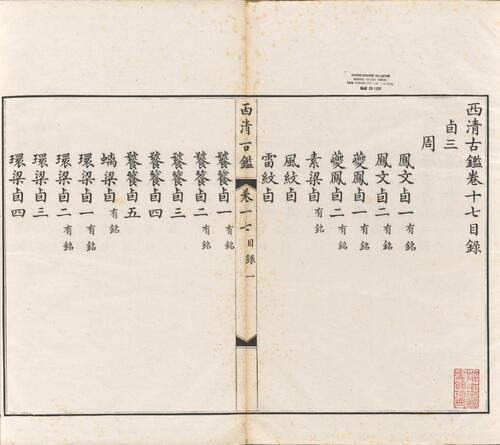 西清古鑑卷十七目錄
卣三
周
鳳文卣一 有銘
鳳文卣二 有銘
夔鳳卣一 有銘
夔鳳卣二 有銘
素梁卣 有銘
風紋卣
雷紋卣
西清古鑑 卷十七目錄 一
饕餮卣一 有銘
饕餮卣二 有銘
饕餮卣三
饕餮卣四
饕餮卣五
螭梁卣 有銘
環梁卣一 有銘
環梁卣二 有銘
環梁卣三
環梁卣四